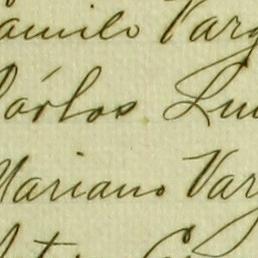 amilo Varg
arlos Lu
Mariano Var